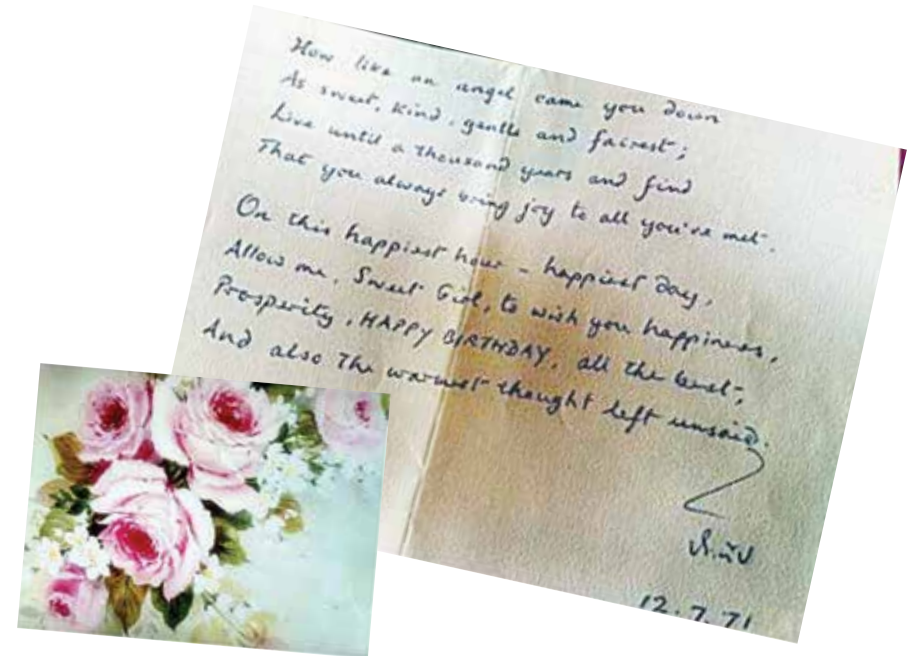 How like an angel came you down
As sweet, kind, gentle and fairest;
Live until a thousand years and find
That you always bring joy to all you've met.
On this happiest hour - happiest day,
Allow me, Sweet Girl, to wish you happiness,
Prosperity, HAPPY BIRTHDAY, all the best;
And also the warmest thought left unsaid.
12.7.71